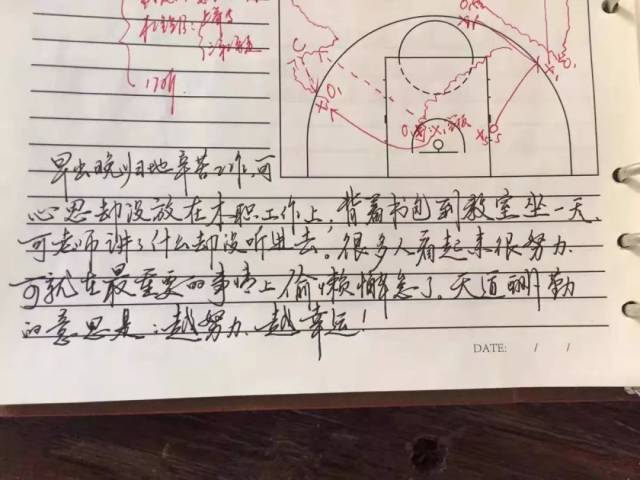 早出晚归地辛苦工作,可
心思却没放在本职工作上,背着书包到教室坐一天,
可老师讲了什么却没听进去。很多人看起来很努力.
可就在最重要的事情上偷懒懈怠了.天道酬勤
的意思是:越努力.越幸运!
DATE: / /